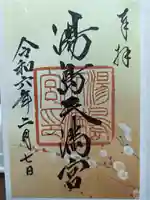 奉拝
湯島天満宮
令和六年二月七日